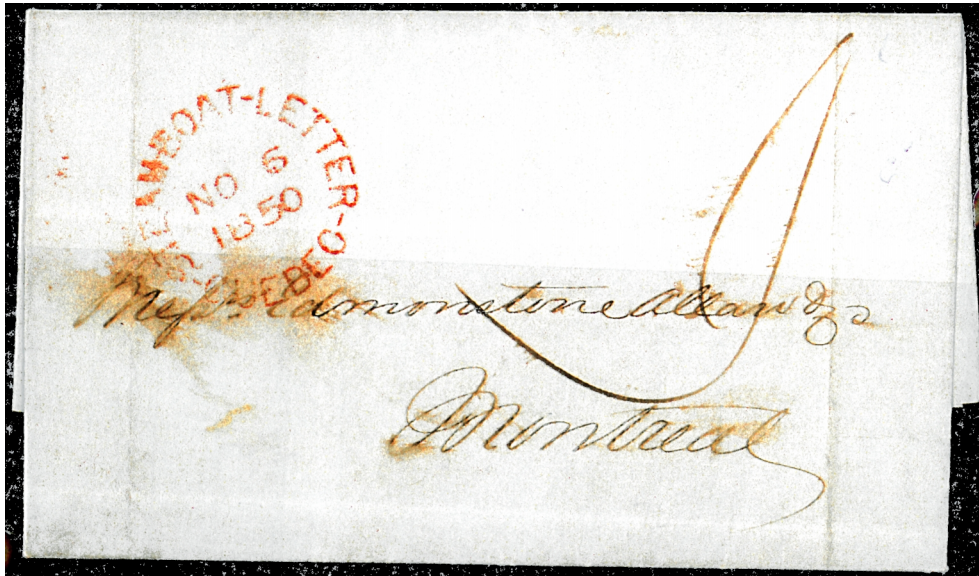 STEAMBOAT-LETTER-QUEBEC
NO 6
1850
9
Messrs Edmonstone Allan & Co
Montreal